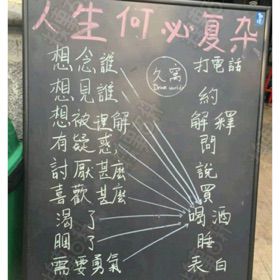 人生何必复杂
想念誰 打電話
想見誰 約
想被理解 解釋
有疑惑， 問
討厭甚麼 說
喜歡甚麼 買
渴了 喝酒
睏了 睡
需要勇氣 表白
久窩
Dream world